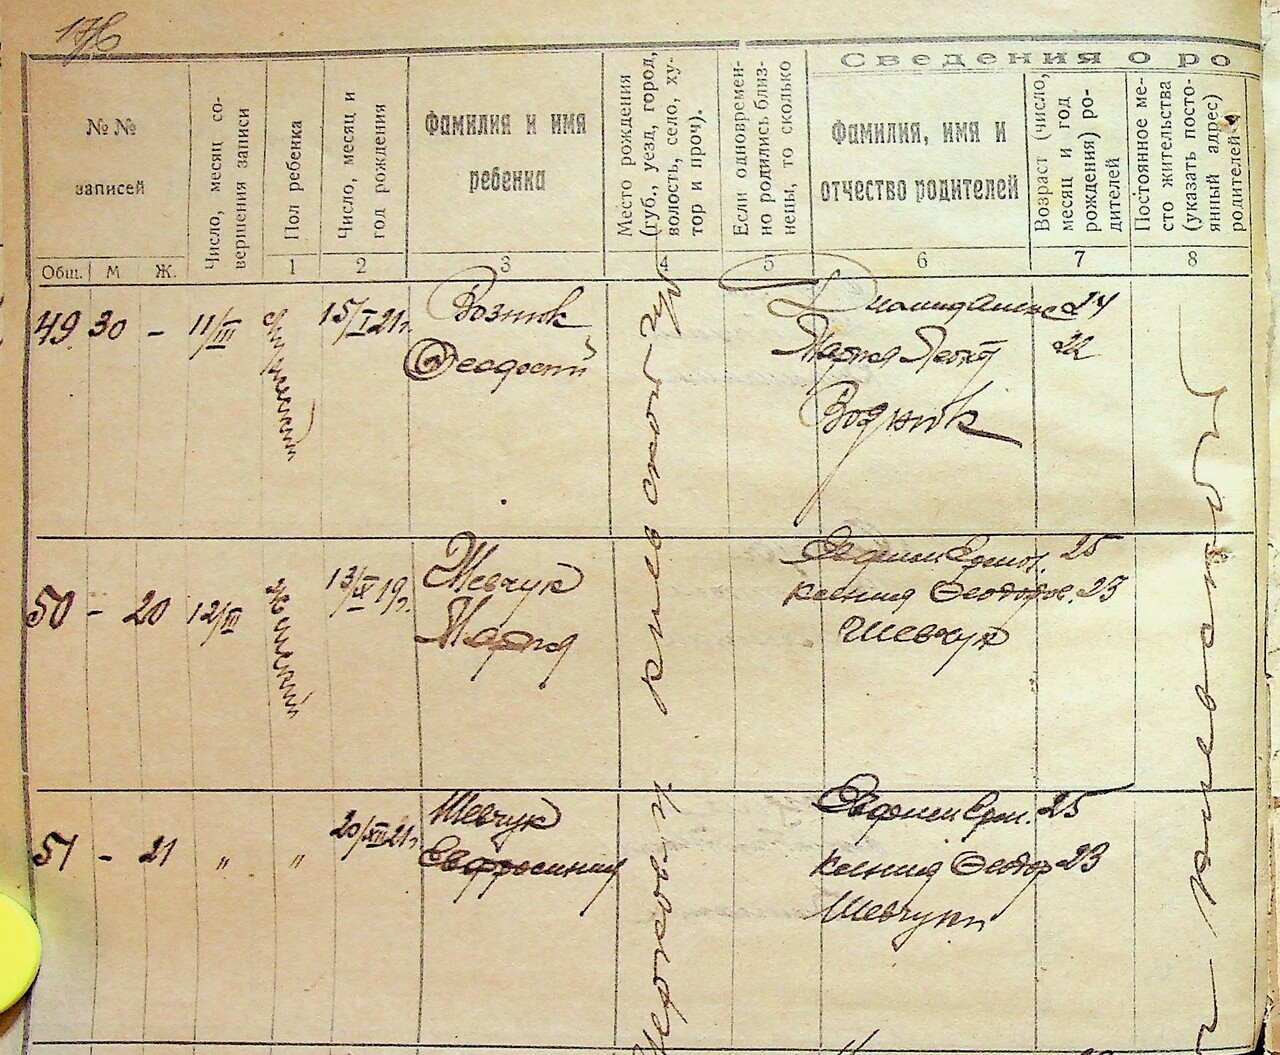 176
Сведения о ро
№ № записей
Число, месяц со-
вершения записи
Пол ребенка
Число, месяц и
год рождения
Фамилия и имя
ребенка
Место рождения
(губ., уезд, город,
волость, село, ху-
тор и проч).
Если одновремен-
но родились близ-
нецы, то сколько
Фамилия, имя и
отчество родителей
Возраст (число,
месяц и год
рождения) ро-
дителей
Постоянное ме-
сто жительства
(указать посто-
янный адрес)
родителей
Общ. М Ж. 1 2 3 4 5 6 7 8
49 30 - 11/III
15/I 21г.
Возник
Феодосий
24
Мария
22
Возник
50 - 20 12/III женский 13/IX 19г.
Шевчук
Мария
Евфим Ермол. 25
Ксения Феодоров. 23
Шевчук
51 - 21 " " 20/XII 21г.
Шевчук
Евфросиния
Евфим Ерм. 25
Ксения Феодор 23
Шевчуки